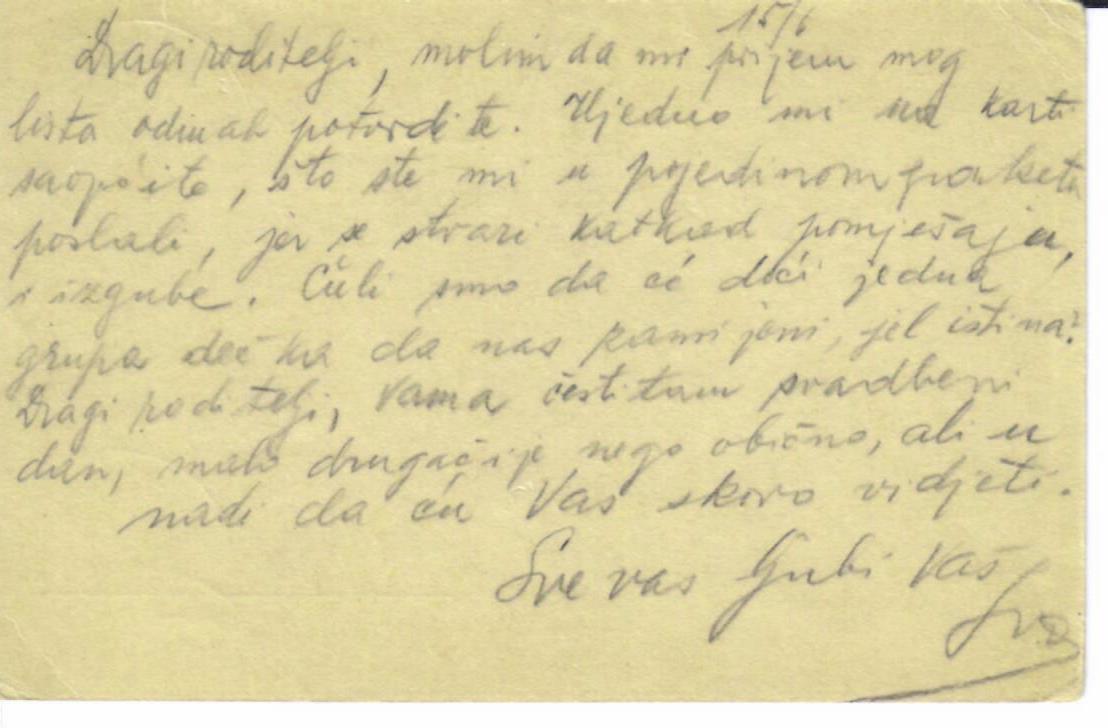 15/6
Dragi roditelji, molim da mi prijem mog
lista odmah potvrdite. Ujedno mi na karti
saopćite, što ste mi u pojedinom paketu
poslali, jer se stvari katkad pomješaju,
i izgube. Čuli smo da će doći jedna
grupa dečka da nas zamijeni, jel istina?
Dragi roditelji, Vama čestitam svadbeni
dan, malo drugačije nego obično, ali u
nadi da ću Vas skoro vidjeti.
Sve vas ljubi Vaš